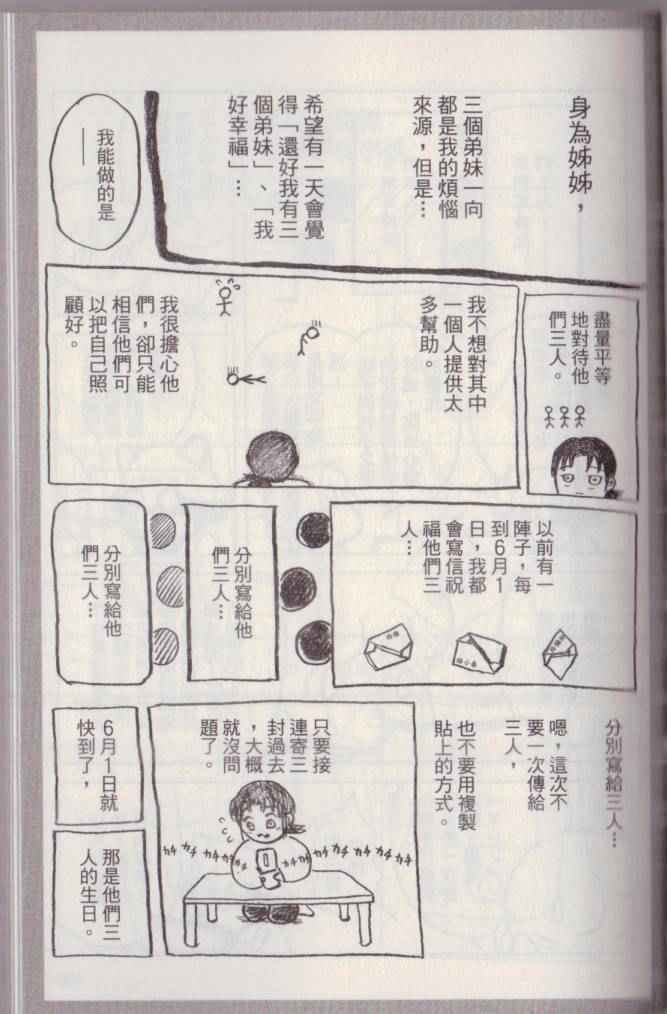 身為姊姊，
三個弟妹一向
都是我的煩惱
來源，但是…
希望有一天會覺
得「還好我有三
個弟妹」、「我
好幸福」…
我能做的是
——
盡量平等
地對待他
們三人。
我不想對其中
一個人提供太
多幫助。
我很擔心他
們，卻只能
相信他們可
以把自己照
顧好。
以前有一
陣子，每
到6月1
日，我都
會寫信祝
福他們三
人…
分別寫給他
們三人…
分別寫給他
們三人…
分別寫給三人…
嗯，這次不
要一次傳給
三人，
也不要用複製
貼上的方式。
只要接
連寄三
封過去
，大概
就沒問
題了。
カチ カチ カチ カチ カチ カチ カチ カチ カチ
6月1日就
快到了，
那是他們三
人的生日。